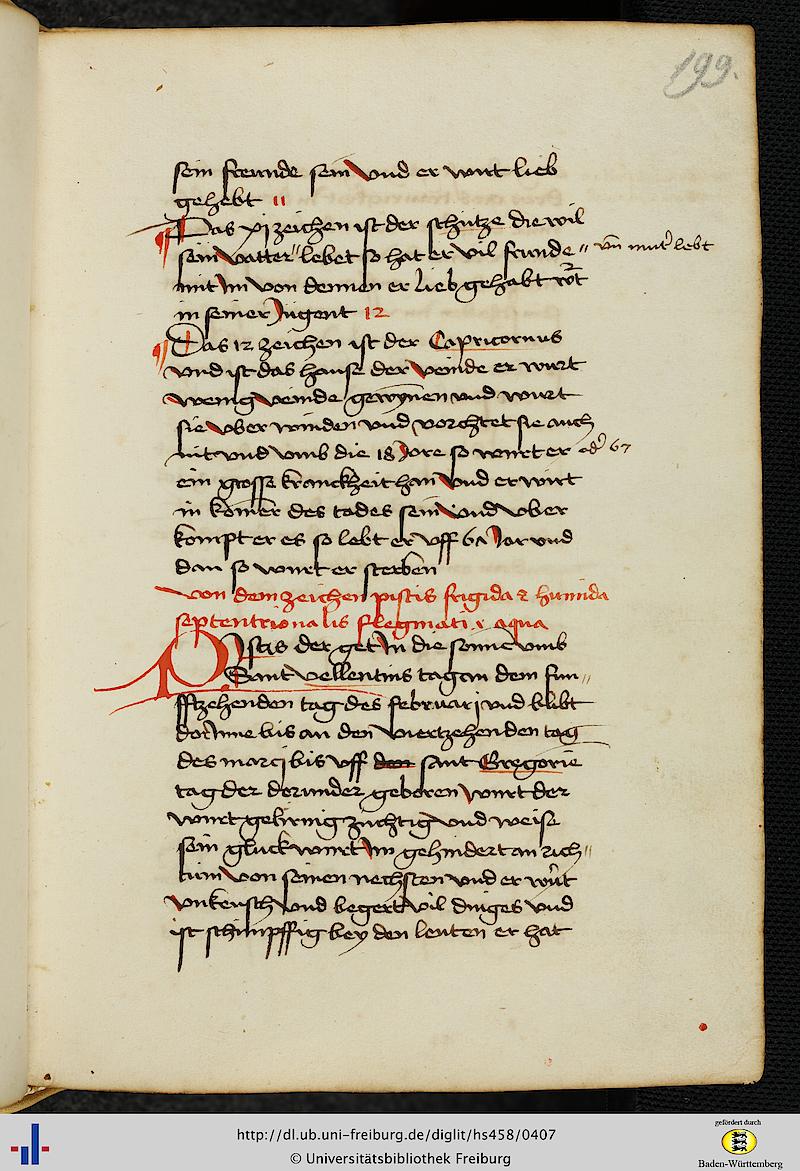 199.
sein freunde sein vnd er wirt lieb
gehebt 11
Das xj zeichen ist der schutze die wil
sein vatter lebet so hat er vil frunde vn̄ mut' lebt
mit Im von dennen er lieb gehabt
in seiner Jugent 12
Das 12 zeichen ist der Capricornus
vnd ist das hause der veinde er wurt
wenig veinde gewynen vnd wurt
sie vber winden vnd vorchtet sie auch
nit vnd vmb die 18 Jore so wurt er od' 67
ein grosse kranckheit han vnd er wirt
in komer des todes sein vnd vber
kompt er es so lebt er vff Jar vnd
dan so wurt er sterben
von dem zeichen piscis frigida & humida
septentrionalis flegmatix aqua
Piscis der get In die sonne vmb
Sant vellentins tag an dem fun〃
fftzehenden tag des februarj vnd blibt
dor Inne bis an den viertzehenden tag
des marcj bis vff den sant Gregorie
tag der dorunder geboren wurt der
wurt gelirnig zuchtig vnd weise
sein gluck wurt Im gehindert an rich〃
tum von seinen nechsten vnd er wurt
vnkeusch vnd begert vil dinges vnd
ist schimpffig bey den leuten er hat
http://dl.ub.uni-freiburg.de/diglit/hs458/0407
© Universitätsbibliothek Freiburg
gefördert durch
Baden-Württemberg